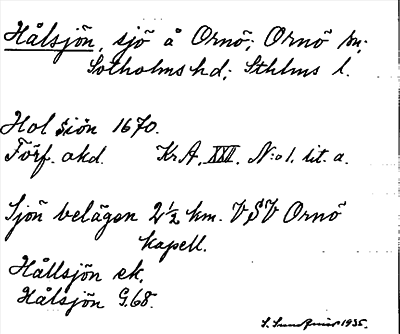 Hålsjön, sjö å Ornö; Ornö sn;
Sotholms hd; Sthlms l.
Hol Siön 1670.
Förf. akd. Kr.A. XXI. N:o 1. lit. a.
Sjön belägen 2½ km. VSV Ornö
kapell.
Hållsjön ek.
Hålsjön G.68.
1935.